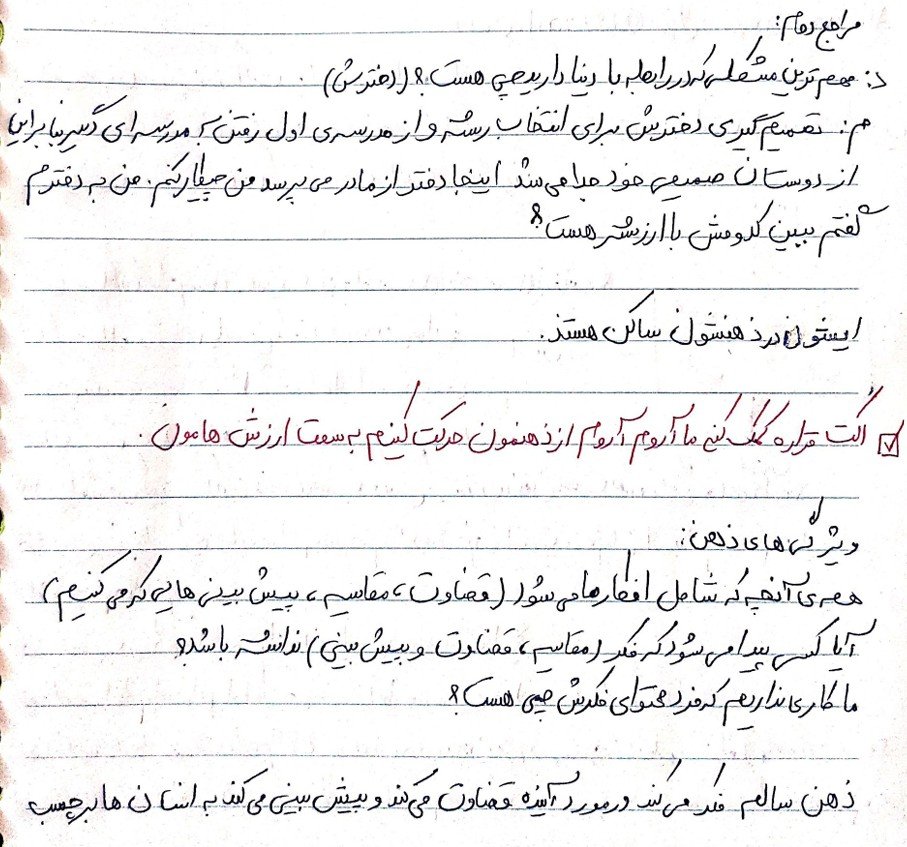 مراجع دوم:
د: مهم ترین مشکلی که در رابطه با دنیا دارید چی هست؟ (دخترش)
م: تصمیم گیری دخترش برای انتخاب رشته و از مدرسه ی اول رفتن به مدرسه ای دیگر بنابراین
از دوستان صمیمی خود جدا می شد اینجا دختر از مادر می پرسد من چیکار کنم. من به دخترم
گفتم ببین کدومش با ارزشتر هست؟
ایشون در ذهنشون ساکن هستند.
☑ اکت قراره کمک کنه ما آروم آروم از ذهنمون حرکت کنیم به سمت ارزش هامون.
ویژگی های ذهن:
همه ی آنچه که شامل افکار ما می شود (قضاوت، مقایسه، پیش بینی هایی که می کنیم)
آیا کسی پیدا می شود که فکر (مقایسه، قضاوت و پیش بینی) نداشته باشد؟
ما کاری نداریم که فرد محتوای فکرش چی هست؟
ذهن سالم فکر می کند در مورد آینده قضاوت می کند و پیش بینی می کند به انسان ها برچسب